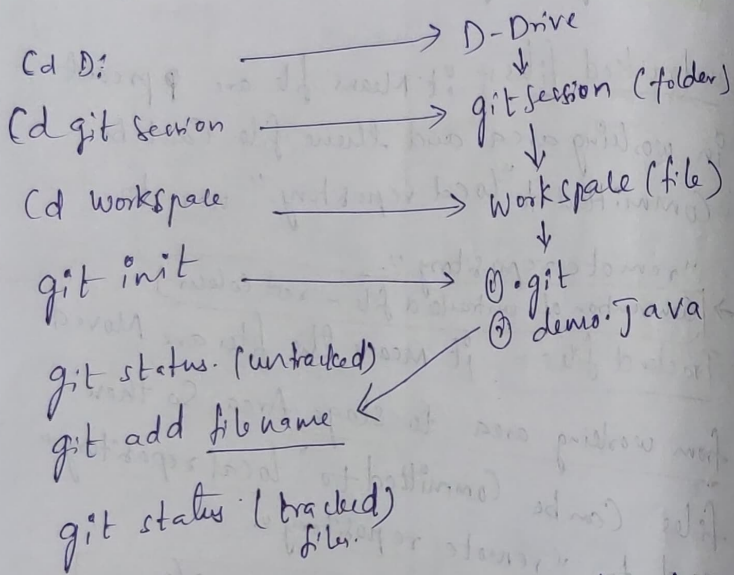 Cd D: → D-Drive
↓
Cd git Session → git session (folder)
↓
Cd workspace → workspace (file)
↓
git init → ① .git
② demo.Java
git status. (untracked)
git add filename
git status. (tracked)
files.